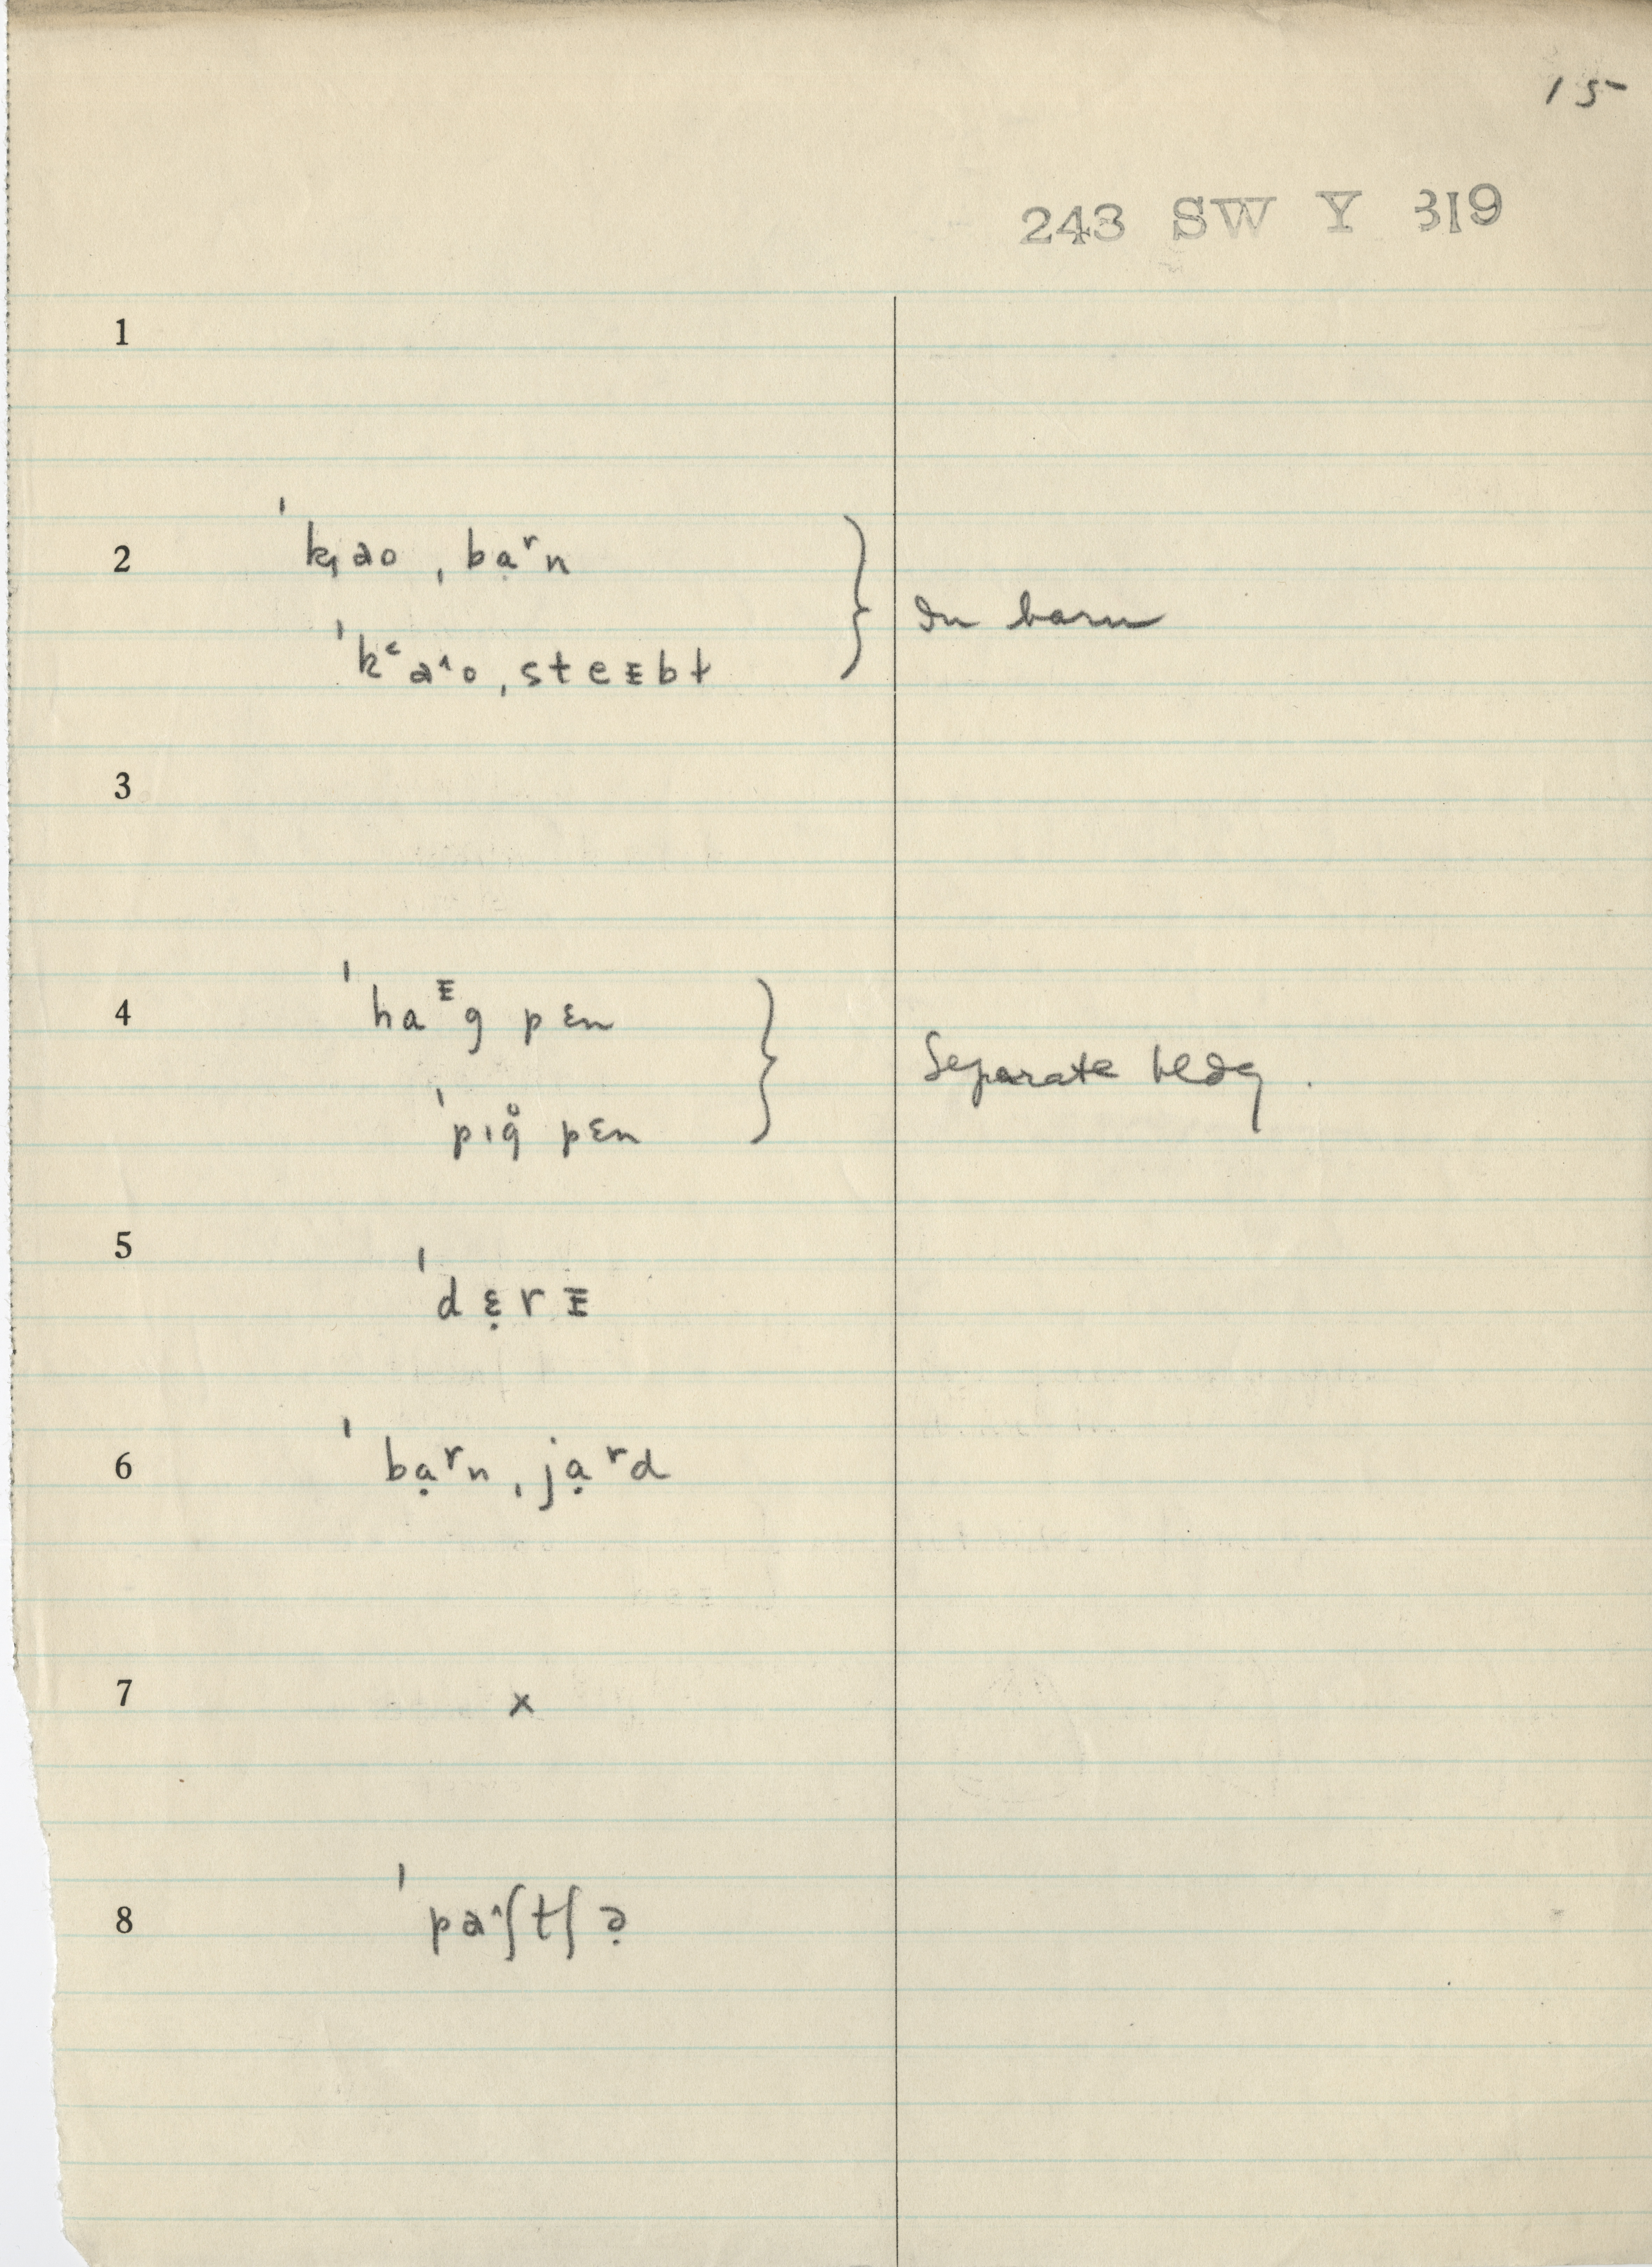 15
243 SW Y 319
1
2 ˈk̩ao ˌbạʳn
ˈkʻa^o ˌsteᵻbɫ
} In barn
3
4 ˈhaᵻg pɛn
ˈpɪg̊ pɛn
} Separate bldg.
5 ˈdɛ̣rᵻ
6 ˈbạʳn ˌjạʳd
7 x
8 ˈpa^ʃtʃə̣